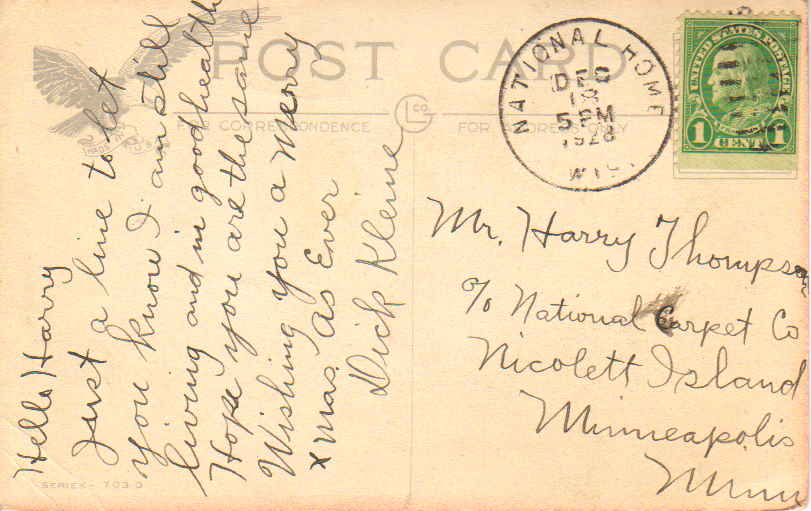 POST CARD
FOR CORRESPONDENCE
FOR ADDRESS ONLY
L Co
MADE IN U.S.A.
Hello Harry
Just a line to let
you know I am still
living and in good health
Hope you are the same
Wishing you a Merry
xmas. as Ever
Dick Kleine
SERIES- 703 D
NATIONAL HOME
DEC
18
5 PM
1928
WIS.
UNITED STATES POSTAGE
1 CENT 1
Mr. Harry Thompson
c/o National Carpet Co
Nicolett Island
Minneapolis
Minn